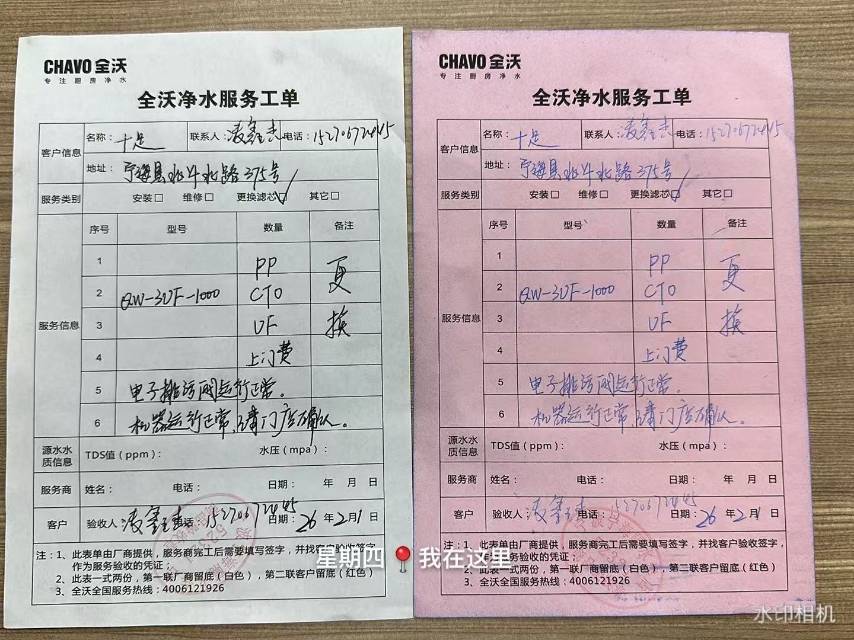 CHAVO 全沃
专注厨房净水
全沃净水服务工单
客户信息 名称：十足 联系人：凌鑫志 电话：15270672445
地址：宁海县北斗北路375号
服务类别 安装□ 维修□ 更换滤芯☑ 其它□
服务信息
序号 型号 数量 备注
1 PP 更
2 QW-3UF-1000 CTO
3 UF 换
4 上门费
5 电子排污阀运行正常。
6 机器运行正常，请门店确认。
源水水质信息 TDS值（ppm）： 水压（mpa）：
服务商 姓名： 电话： 日期： 年 月 日
客户 验收人：凌鑫志 电话：15270672445 日期：26年2月1日
注：1、此表单由厂商提供，服务商完工后需要填写签字，并找客户验收签字
作为服务验收的凭证；
2、此表一式两份，第一联厂商留底（白色），第二联客户留底（红色）
3、全沃全国服务热线：4006121926
CHAVO 全沃
专注厨房净水
全沃净水服务工单
客户信息 名称：十足 联系人：凌鑫志 电话：15270672445
地址：宁海县北斗北路375号
服务类别 安装□ 维修□ 更换滤芯☑ 其它□
服务信息
序号 型号 数量 备注
1 PP 更
2 QW-3UF-1000 CTO
3 UF 换
4 上门费
5 电子排污阀运行正常。
6 机器运行正常，请门店确认。
源水水质信息 TDS值（ppm）： 水压（mpa）：
服务商 姓名： 电话： 日期： 年 月 日
客户 验收人：凌鑫志 电话：15270672445 日期：26年2月1日
注：1、此表单由厂商提供，服务商完工后需要填写签字，并找客户验收签字
服务验收的凭证；
2、此表一式两份，第一联厂商留底（白色），第二联客户留底（红色）
3、全沃全国服务热线：4006121926
星期四 我在这里
水印相机